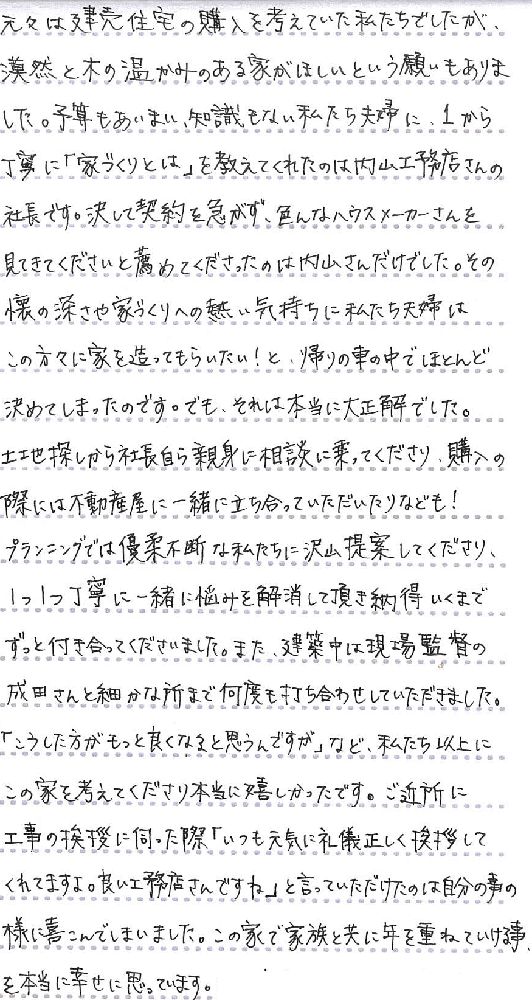 元々は建売住宅の購入を考えていた私たちでしたが、
漠然と木の温かみのある家がほしいという願いもありま
した。予算もあいまい、知識もない私たち夫婦に、1から
丁寧に「家づくりとは」を教えてくれたのは内山工務店さんの
社長です。決して契約を急がず、色んなハウスメーカーさんを
見てきてくださいと薦めてくださったのは内山さんだけでした。その
懐の深さや家づくりへの熱い気持ちに私たち夫婦は
この方々に家を造ってもらいたい！と、帰りの車の中でほとんど
決めてしまったのです。でも、それは本当に大正解でした。
土地探しから社長自ら親身に相談に乗ってくださり、購入の
際には不動産屋に一緒に立ち合っていただいたりなども！
プランニングでは優柔不断な私たちに沢山提案してくださり、
1つ1つ丁寧に一緒に悩みを解消して頂き納得いくまで
ずっと付き合ってくださいました。また、建築中は現場監督の
成田さんと細かな所まで何度も打ち合わせしていただきました。
「こうした方がもっと良くなると思うんですが」など、私たち以上に
この家を考えてくださり本当に嬉しかったです。ご近所に
工事の挨拶に伺った際「いつも元気に礼儀正しく挨拶して
くれてますよ。良い工務店さんですね」と言っていただけたのは自分の事の
様に喜こんでしまいました。この家で家族と共に年を重ねていける事
を本当に幸せに思っています。